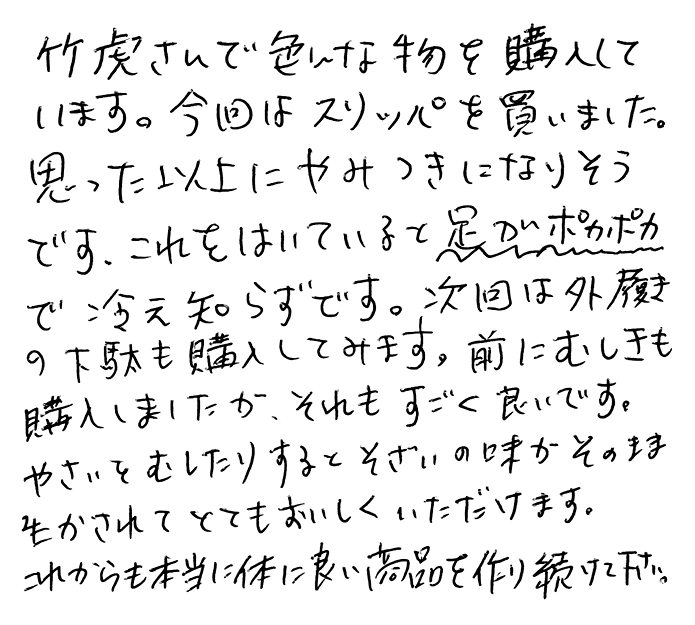 竹虎さんで色んな物を購入して
います。今回はスリッパを買いました。
思った以上にやみつきになりそう
です、これをはいていると足がポカポカ
で冷え知らずです。次回は外履き
の下駄も購入してみます。前にむしきも
購入しましたが、それもすごく良いです。
やさいをむしたりするとそざいの味がそのまま
生かされてとてもおいしくいただけます。
これからも本当に体に良い商品を作り続けて下さい。